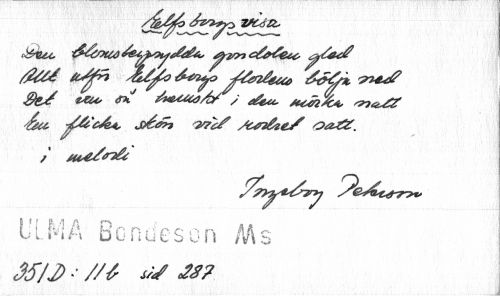 Elfsborgsvisa
Den blomsterprydda gondolen gled
Allt utför Elfsborgs flodens bölja ned
Det var så hemskt i den mörka natt
En flicka skön vid rodret satt.
1 melodi
Ingeborg Peterson
ULMA Bondeson Ms
351D: 11b sid 287